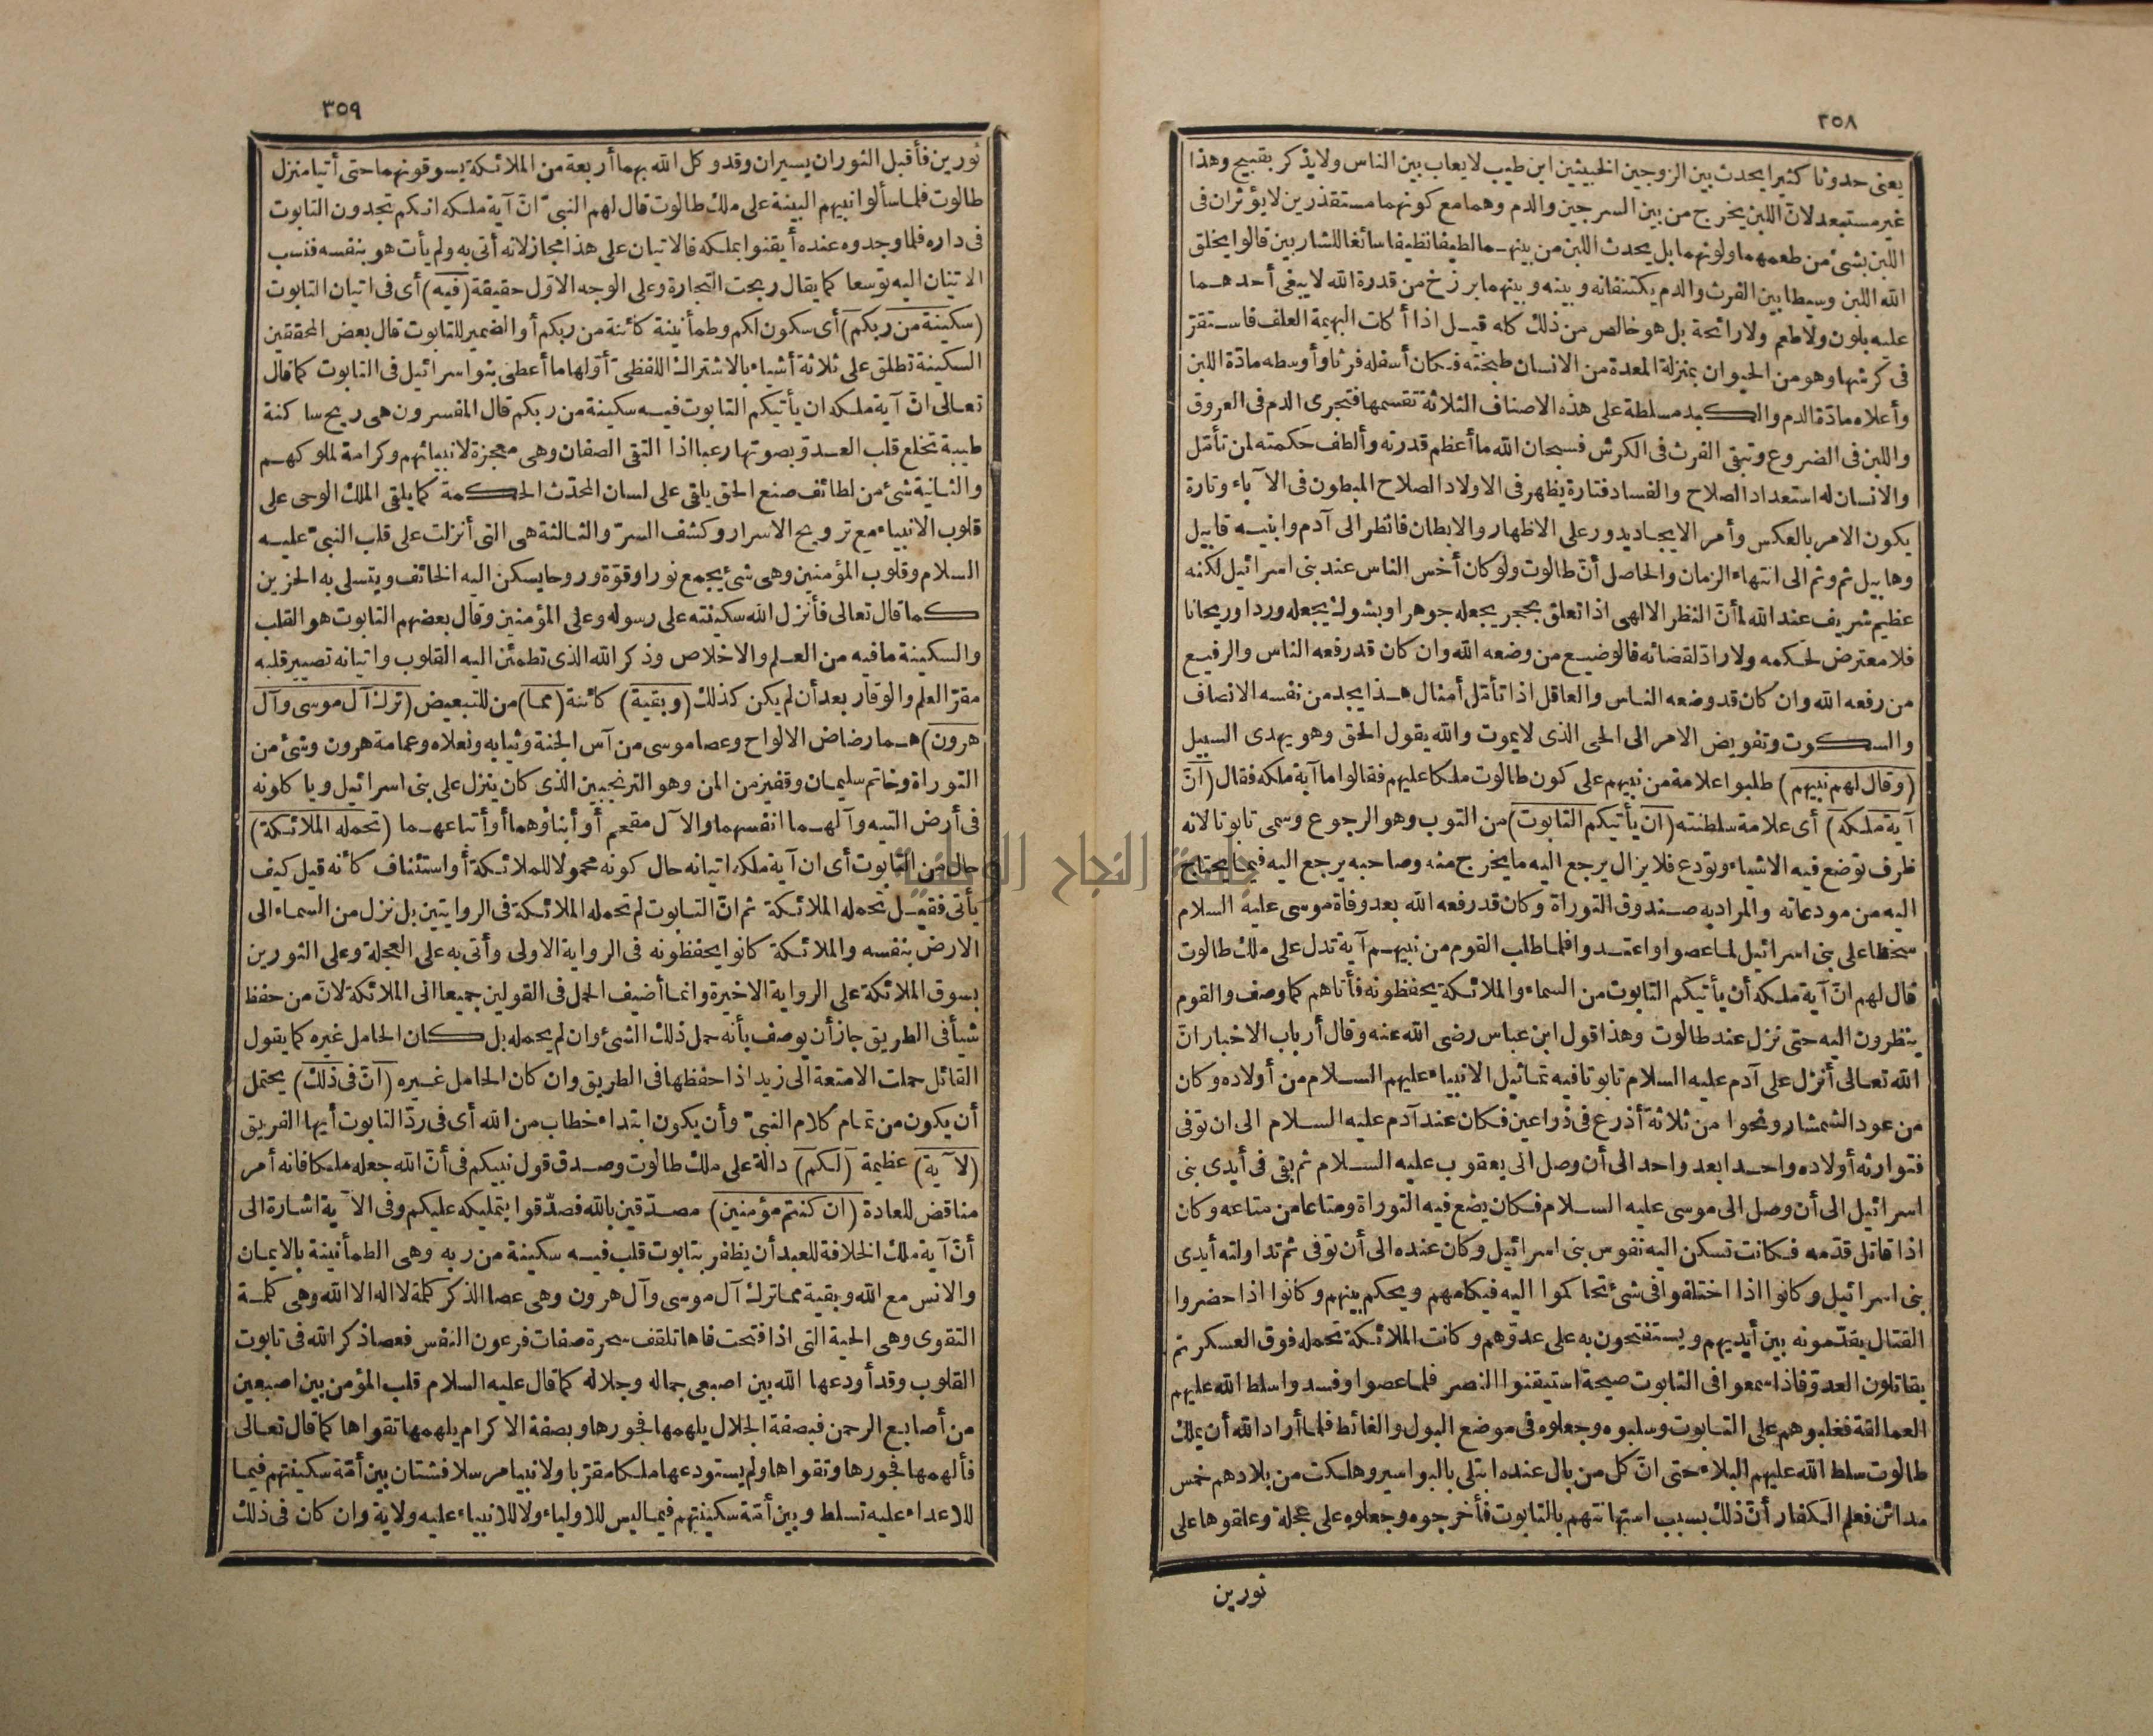 ٣٥٨
يعنى حدوثا كثيرا يحدث بين الزوجين الخبيثين ابن طيب لا يعاب بين الناس ولا يذكر بقبيح وهذا
غير مستبعد لانّ اللبن يخرج من بين السرجين والدم وهما مع كونهما مستقذرين لا يؤثران فى
اللبن بشئ من طعمهما ولونهما بل يحدث اللبن من بينهما لطيفا نظيفا سائغا للشاربين قالوا يخلق
الله اللبن وسيطا بين الفرث والدم يكتنفانه وبينه وبينهما برزخ من قدرة الله لا يبغى أحدهما
عليه بلون ولا طعم ولا رائحة بل هو خالص من ذلك كله قيل اذا أكلت البهيمة العلف فاستقرّ
فى كرشها وهو من الحيوان بمنزلة المعدة من الانسان طبخته فكان أسفله فرثا وأوسطه مادّة اللبن
وأعلاه مادّة الدم والكبد مسلطة على هذه الاصناف الثلاثة تقسمها فتجرى الدم فى العروق
واللبن فى الضروع وتبقى الفرث فى الكرش فسبحان الله ما أعظم قدرته وألطف حكمته لمن تأمّل
والانسان له استعداد الصلاح والفساد فتارة يظهر فى الاولاد الصلاح المبطون فى الآباء وتارة
يكون الامر بالعكس وأمر الايجاد يدور على الاظهار والابطان فانظر الى آدم وابنيه قابيل
وهابيل ثم وثم الى انتهاء الزمان والحاصل أنّ طالوت ولو كان أخس الناس عند بنى اسرائيل لكنه
عظيم شريف عند الله لما أنّ النظر الالهى اذا تعلق بحجر يجعله جوهرا وبشوك يجعله وردا وريحانا
فلا معترض لحكمه ولا رادّ لقضائه فالوضيع من وضعه الله وان كان قد رفعه الناس والرفيع
من رفعه الله وان كان قد وضعه الناس والعاقل اذا تأمّل أمثال هذا يجد من نفسه الانصاف
والسكوت وتفويض الامر الى الحى الذى لا يموت والله يقول الحق وهو يهدى السبيل
(وقال لهم نبيهم) طلبوا علامة من نبيهم على كون طالوت ملكا عليهم فقالوا ما آية ملكه فقال (انّ
آية ملكه) أى علامة سلطنته (ان يأتيكم التابوت) من التوب وهو الرجوع وسمى تابوتا لانه
ظرف توضع فيه الاشياء وتودع فلا يزال يرجع اليه ما يخرج منه وصاحبه يرجع اليه فيما يحتاج
اليه من مودعاته والمراد به صندوق التوراة وكان قد رفعه الله بعد وفاة موسى عليه السلام
سخطا على بنى اسرائيل لما عصوا واعتدوا فلما طلب القوم من نبيهم آية تدل على ملك طالوت
قال لهم انّ آية ملكه أن يأتيكم التابوت من السماء والملائكة يحفظونه فأتاهم كما وصف والقوم
ينظرون اليه حتى نزل عند طالوت وهذا قول ابن عباس رضى الله عنه وقال أرباب الاخبار انّ
الله تعالى أنزل على آدم عليه السلام تابوتا فيه تماثيل الانبياء عليهم السلام من أولاده وكان
من عود الشمشار ونحوا من ثلاثة أذرع فى ذراعين فكان عند آدم عليه السلام الى ان توفى
فتوارثه أولاده واحدا بعد واحد الى أن وصل الى يعقوب عليه السلام ثم بقى فى أيدى بنى
اسرائيل الى أن وصل الى موسى عليه السلام فكان يضع فيه التوراة ومتاعا من متاعه وكان
اذا قاتل قدّمه فكانت تسكن اليه نفوس بنى اسرائيل وكان عنده الى أن توفى ثم تداولته أيدى
بنى اسرائيل وكانوا اذا اختلفوا فى شئ تحاكموا اليه فيكلمهم ويحكم بينهم وكانوا اذا حضروا
القتال يقدّمونه بين أيديهم ويستفتحون به على عدوّهم وكانت الملائكة تحمله فوق العسكر ثم
يقاتلون العدوّ فاذا سمعوا فى التابوت صيحة استيقنوا النصر فلما عصوا وفسدوا سلط الله عليهم
العمالقة فغلبوهم على التابوت وسلبوه وجعلوه فى موضع البول والغائط فلما أراد الله أن يملك
طالوت سلط الله عليهم البلاء حتى انّ كل من بال عنده ابتلى بالبواسير وهلكت من بلادهم خمس
مدائن فعلم الكفار أنّ ذلك بسبب استهانتهم بالتابوت فأخرجوه وجعلوه على عجلة وعلقوها على
ثورين
٣٥٩
ثورين فأقبل الثوران يسيران وقد وكل الله بهما أربعة من الملائكة يسوقونهما حتى أتيا منزل
طالوت فلما سألوا نبيهم البينة على ملك طالوت قال لهم النبىّ انّ آية ملكه انكم تجدون التابوت
فى داره فلما وجدوه عنده أيقنوا بملكه فالاتيان على هذا مجاز لانه أتى به ولم يأت هو بنفسه فنسب
الاتيان اليه توسعا كما يقال ربحت التجارة وعلى الوجه الاوّل حقيقة (فيه) أى فى اتيان التابوت
(سكينة من ربكم) أى سكون لكم وطمأنينة كائنة من ربكم أو الضمير للتابوت قال بعض المحققين
السكينة تطلق على ثلاثة أشياء بالاشتراك اللفظىّ أوّلها ما أعطى بنو اسرائيل فى التابوت كما قال
تعالى انّ آية ملكه ان يأتيكم التابوت فيه سكينة من ربكم قال المفسرون هى ريح ساكنة
طيبة تخلع قلب العدوّ بصوتها رعبا اذا التقى الصفان وهى معجزة لانبيائهم وكرامة لملوكهم
والثانية شئ من لطائف صنع الحق يلقى على لسان المحدّث الحكمة كما يلقى الملك الوحى على
قلوب الانبياء مع ترويح الاسرار وكشف السرّ والثالثة هى التى أنزلت على قلب النبىّ عليه
السلام وقلوب المؤمنين وهى شئ يجمع نورا وقوّة وروحا يسكن اليه الخائف ويتسلى به الحزين
كما قال تعالى فأنزل الله سكينته على رسوله وعلى المؤمنين وقال بعضهم التابوت هو القلب
والسكينة ما فيه من العلم والاخلاص وذكر الله الذى تطمئن اليه القلوب واتيانه تصيير قلبه
مقرّ العلم والوقار بعد أن لم يكن كذلك (وبقية) كائنة (مما) من للتبعيض (ترك آل موسى وآل
هرون) هما رضاض الالواح وعصا موسى من آس الجنة وثيابه ونعلاه وعمامة هرون وشئ من
التوراة وخاتم سليمان وقفيز من المن وهو الترنجبين الذى كان ينزل على بنى اسرائيل ويأكلونه
فى أرض التيه وآلهما انفسهما والآل مقحم أو أبناؤهما أو أتباعهما (تحمله الملائكة)
حال من التابوت أى ان آية ملكه اتيانه حال كونه محمولا للملائكة أو استئناف كأنه قيل كيف
يأتى فقيل تحمله الملائكة ثم انّ التابوت لم تحمله الملائكة فى الروايتين بل نزل من السماء الى
الارض بنفسه والملائكة كانوا يحفظونه فى الرواية الاولى وأتى به على العجلة وعلى الثورين
بسوق الملائكة على الرواية الاخيرة وانما أضيف الحمل فى القولين جميعا الى الملائكة لانّ من حفظ
شيأ فى الطريق جاز أن يوصف بأنه حمل ذلك الشئ وان لم يحمله بل كان الحامل غيره كما يقول
القائل حملت الامتعة الى زيد اذا حفظها فى الطريق وان كان الحامل غيره (انّ فى ذلك) يحتمل
أن يكون من تمام كلام النبىّ وأن يكون ابتداء خطاب من الله أى فى ردّ التابوت أيها الفريق
(لآية) عظيمة (لكم) دالة على ملك طالوت وصدق قول نبيكم فى أنّ الله جعله ملكا فانه أمر
مناقض للعادة (ان كنتم مؤمنين) مصدّقين بالله فصدّقوا بتمليكه عليكم وفى الآية اشارة الى
أنّ آية ملك الخلافة للعبد أن يظفر بتابوت قلب فيه سكينة من ربه وهى الطمأنينة بالايمان
والانس مع الله وبقية مما ترك آل موسى وآل هرون وهى عصا الذكر كلمة لا اله الا الله وهى كلمة
التقوى وهى الحية التى اذا فتحت فاها تلقف سحرة صفات فرعون النفس فعصا ذكر الله فى تابوت
القلوب وقد أودعها الله بين اصبعى جماله وجلاله كما قال عليه السلام قلب المؤمن بين اصبعين
من أصابع الرحمن فبصفة الجلال يلهمها فجورها وبصفة الاكرام يلهمها تقواها كما قال تعالى
فألهمها فجورها وتقواها ولم يستودعها ملكا مقرّبا ولا نبيا مرسلا فشتان بين أمّة سكينتهم فيما
للاعداء عليه تسلط وبين أمّة سكينتهم فيما ليس للاولياء ولا للانبياء عليه ولاية وان كان فى ذلك
جامعة النجاح الوطنية